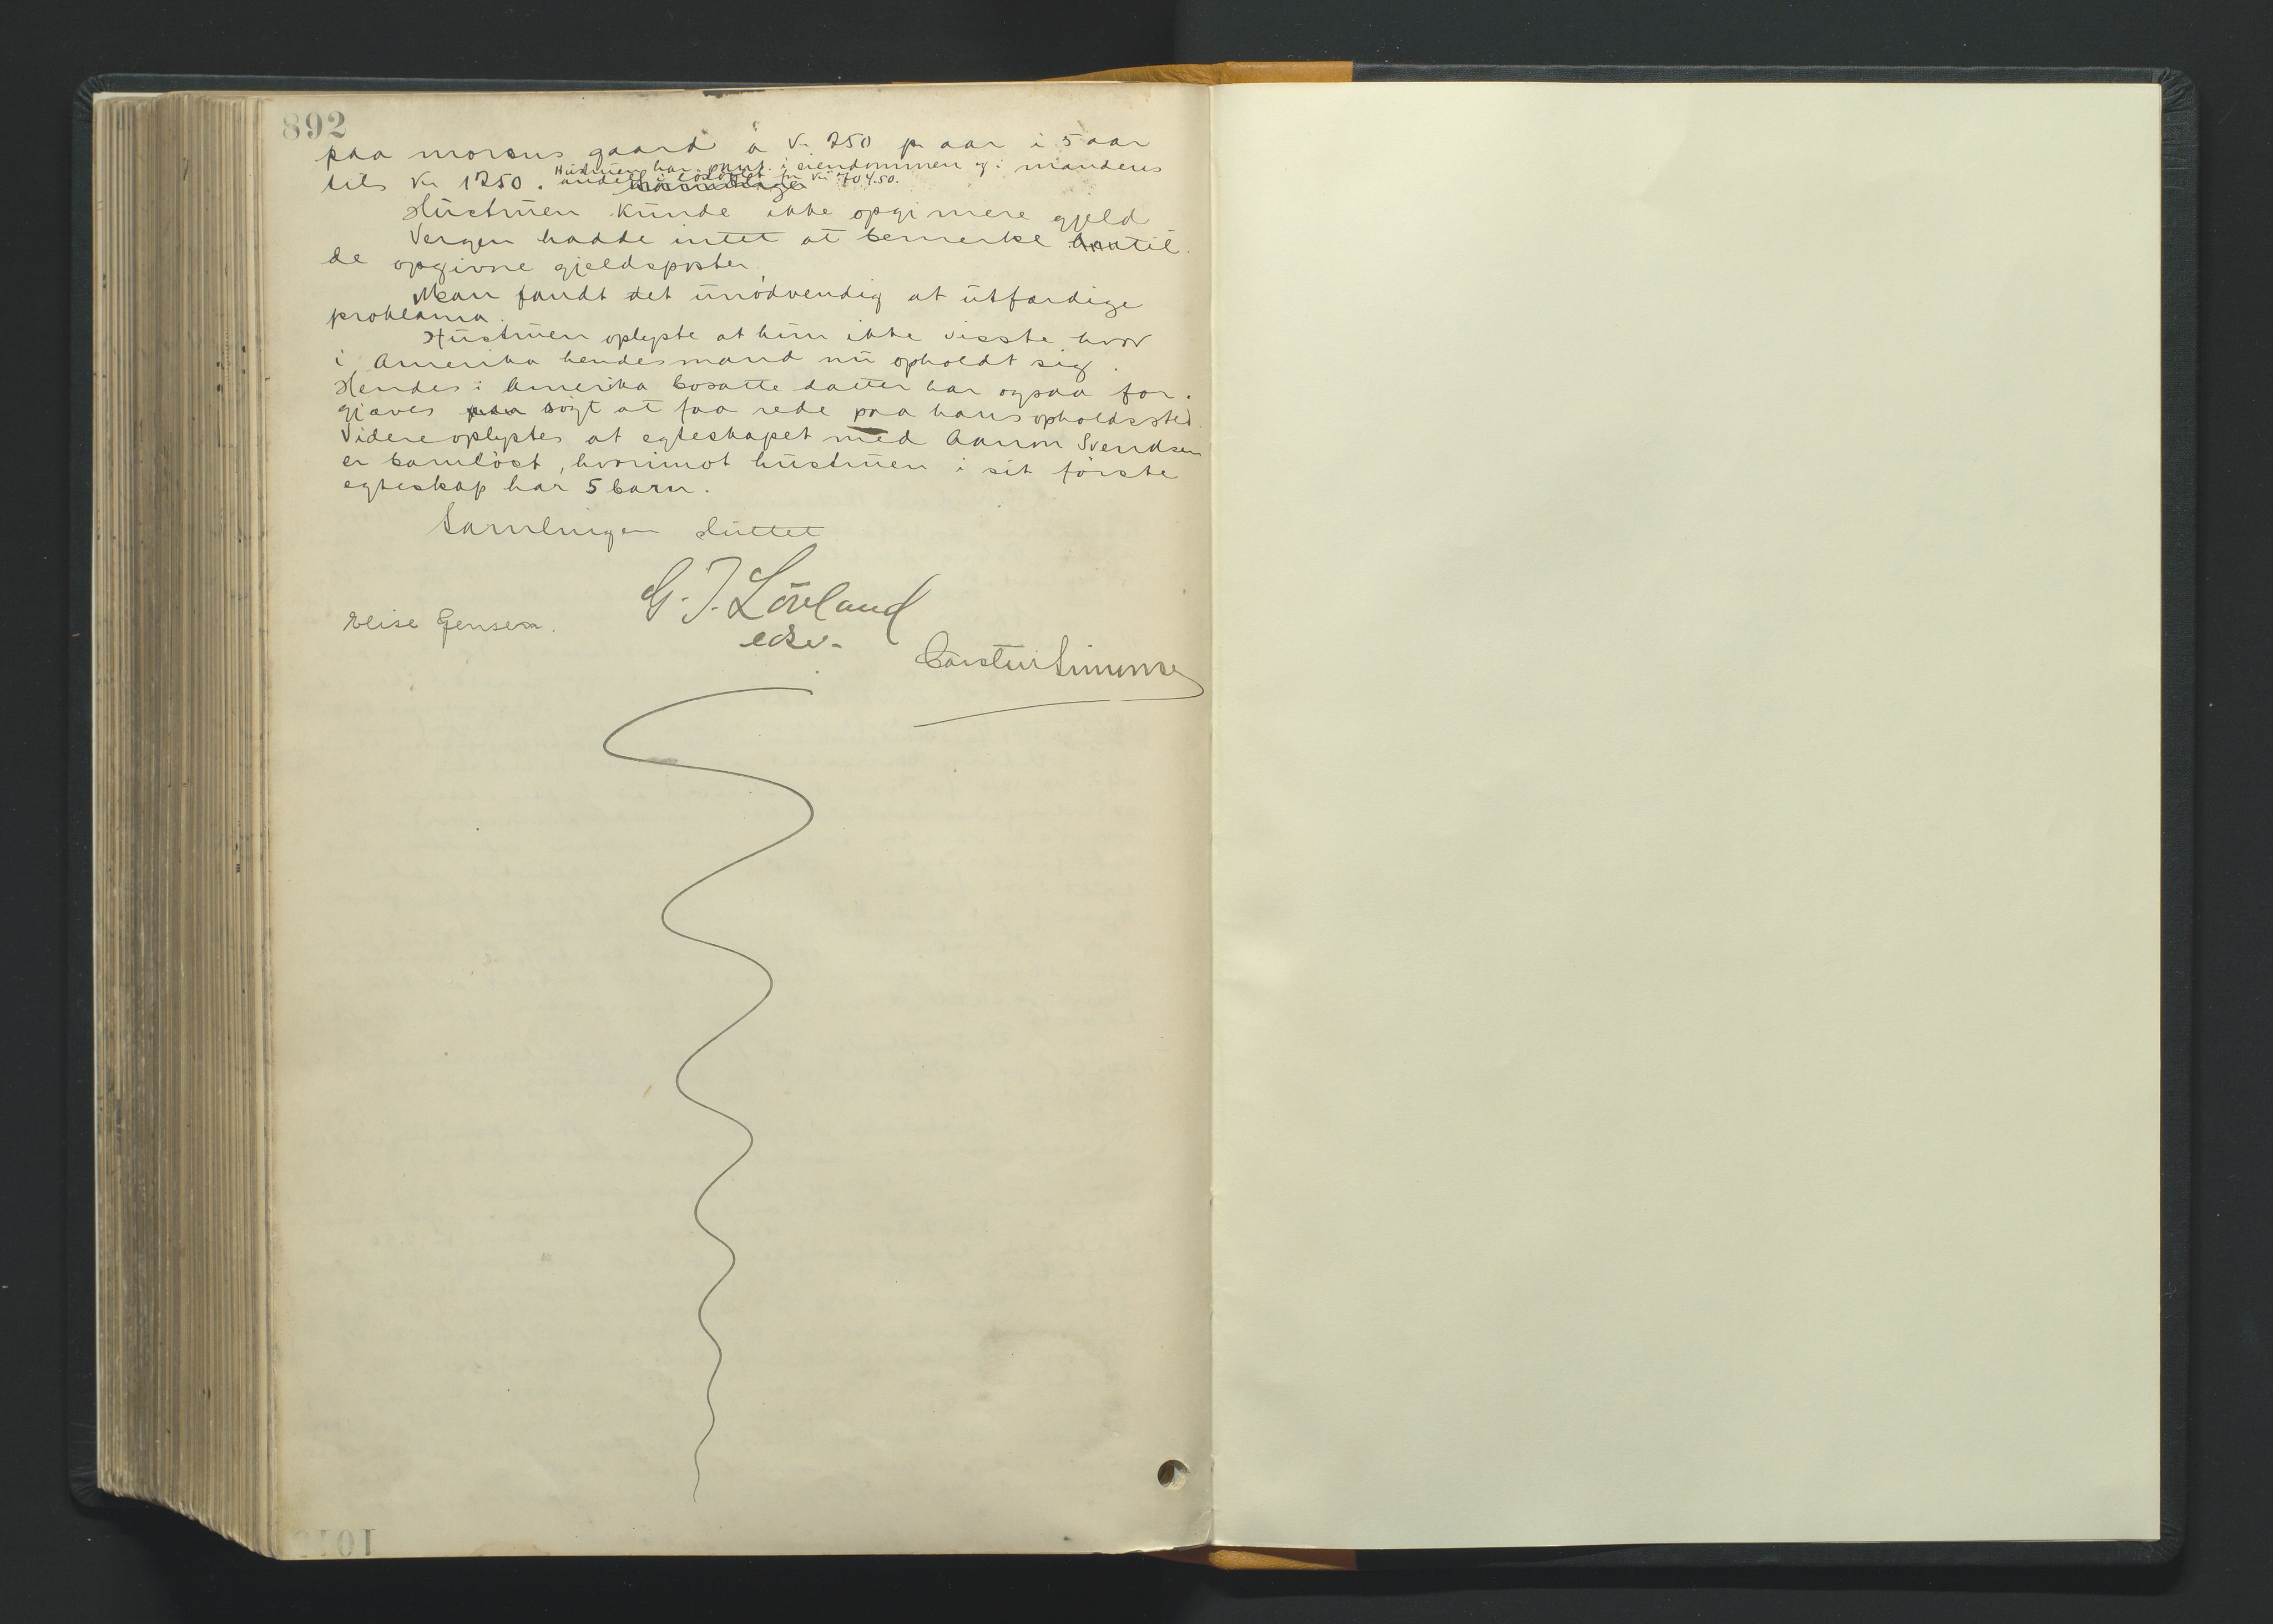 892
paa morens gaard à kr 250 pr aar i 5 aar
Hustruen har pant i eiendommen og i mandens
tils kr 1250. andel i løsøret for kr 704.50.
Hustruen kunde ikke opgi mere gjeld
Vergen hadde intet at bemerke til
de opgivne gjeldsposter.
Man fandt det unödvendig at utfærdige
proklama.
Hustruen oplyste at hun ikke visste hvor
i Amerika hendes mand nu opholdt sig.
Hendes i Amerika bosatte datter har ogsaa for-
gjæves søgt at faa rede paa hans opholdssted.
Videre oplystes at egteskapet med Aanon Svendsen
er barnløst, hvorimot hustruen i sit første
egteskap har 5 barn.
Samlingen sluttet
G. J. Lövland
edsv.
Elise Jensen.
Carsten Simonsen